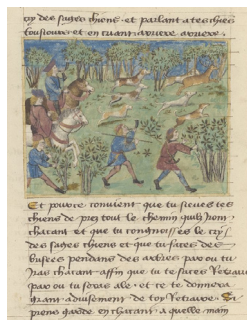 cry des sages chiens et parlant a tes chiens
tousiours et en criant
Et pource convient que tu sieves tes
chiens de pres tout le chemin quilz iront
chacant et que tu congnoisses le cry
des sages chiens et que tu faces des
brisees pendans des arbres par ou tu
iras chacant affin que tu te saces
par ou tu seras ale et ce te donnera
grant advisement de toy
prens garde en chacant a quelle main